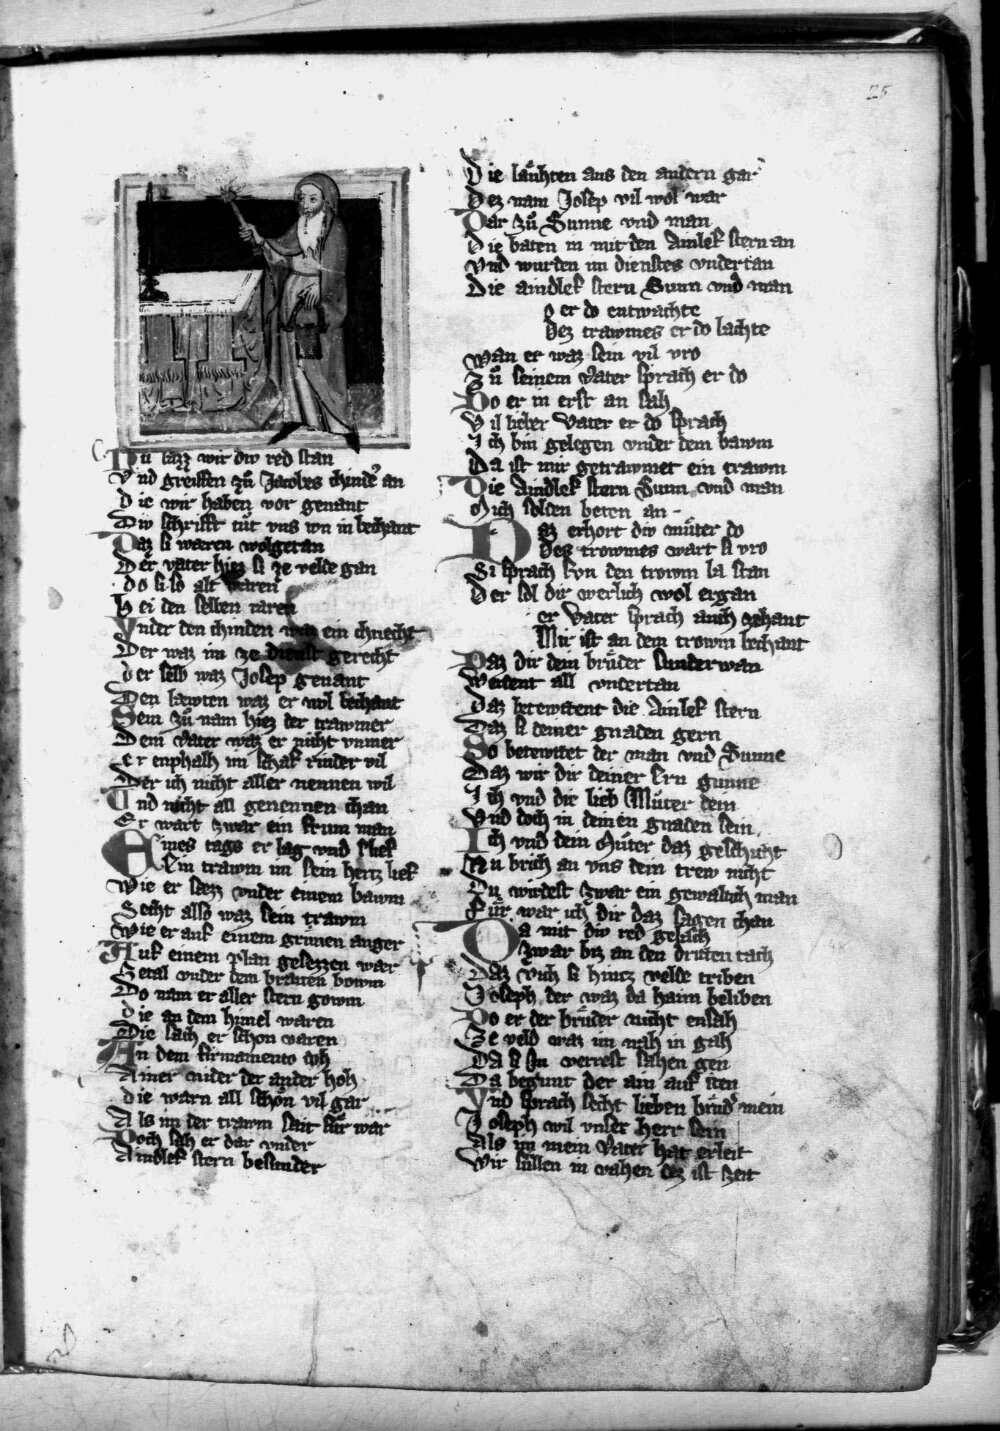 25
Nu lazz wir diw red stan
Vnd greiffen zů Jacobes chinden an
die wir haben vor genant
Diw schrifft tůt vns wn in bechant
Daz si waren wolgetan
Der vater hiez si ze velde gan
do si so alt waren
bei den selben iaren
Vnder den chinden waz ein chnecht
Der waz im ze dienst gerecht
der selb waz Josep genant
Den lawten waz er wol bechant
Sein zů nam hiez der trawmer
Dem vater waz er nicht vnmer
er enphalh im schaf rinder vil
Der ich nicht aller nennen wil
Vnd nicht all genennen chan
Er wart zwar ein frum man
Eines tags er lag vnd slief
Ein trawm im sein hertz lief
Wie er sazz vnder einem bawm
Secht also waz sein trawm
Wie er auf einem grünen anger
Auf einem plan gesezzen wer
Zetal vnder dem braiten bowm
Do nam er aller stern gowm
die an dem himel waren
Die sach er schon varen
An dem firmamento
Ainer nider der ander hoh
die warn all schön vil gar
Als im der trawm sait für war
Doch sah er dar vnder
Aindlef stern besunder
Die laůhten aus den andern gar
Dez nam Josep vil wol war
Dar zů Sunne vnd man
Die baten in mit den Ainlef stern an
Vnd wurden im dienstes vndertan
Die aindlef stern Sunn vnd man
o er do entwachte
Dez trawmes er do lachte
wan er waz sein vil vro
Zů seinem Vater sprach er do
Do er in erst an sah
Vil lieber Vater er do sprach
Ich bin gelegen vnder dem bawm
Da ist mir getrawmet ein trawm
Die Aindlef stern Sunn vnd man
Mich solden beten an
Daz erhort diw můter do
Des trowmes wart si vro
Si sprach svn den trowm la stan
Der sol dir werlich wol ergan
er Vater sprach auch zehant
Mir ist an dem trowm bechant
Daz dir dein brůder sunderwan
Werdent all vndertan
Daz betewttent die Ainlef stern
Daz si deiner gnaden gern
So betewttet der man vnd Sunne
Daz wir dir deiner Ern gunne
Ich vnd die lieb Můter dein
Vnd doch in deinen gnaden sein
Ich vnd dein Můter daz geschicht
Nu brich an vns dein trew nicht
Du wirdest zwar ein gewaltich man
Für war ich dir daz sagen chan
Da mit diw red gelach
Zwar biz an den dritten tach
Daz vich si hintz velde triben
Joseph der waz da haim beliben
Do er der brůder nicht ensah
Ze veld waz im nah in gah
Da si In verrest sahen gen
Da begunt der ain auf sten
Vnd sprach secht lieben brůder mein
Joseph wil vnser herr sein
Als im mein Vater hat erleit
Wir süllen in vahen dez ist zeit